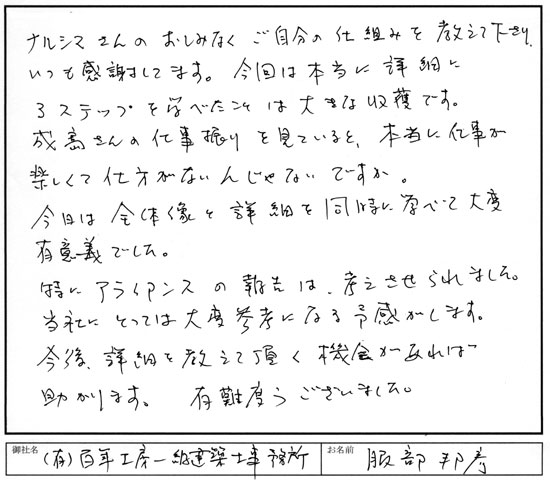 ナルシマさんのおしみなくご自分の仕組みを教えて下さり、
いつも感謝してます。今回は本当に詳細に
3ステップを学べたことは大きな収穫です。
成島さんの仕事振りを見ていると、本当に仕事が
楽しくて仕方がないんじゃないですか。
今日は全体像と詳細を同時に学べて大変
有意義でした。
特にアライアンスの報告は、考えさせられました。
当社にとっては大変参考になる予感がします。
今後、詳細を教えて頂く機会があれば
助かります。 有難度うございました。
御社名 (有)百年工房一級建築士事務所 お名前 服部邦彦